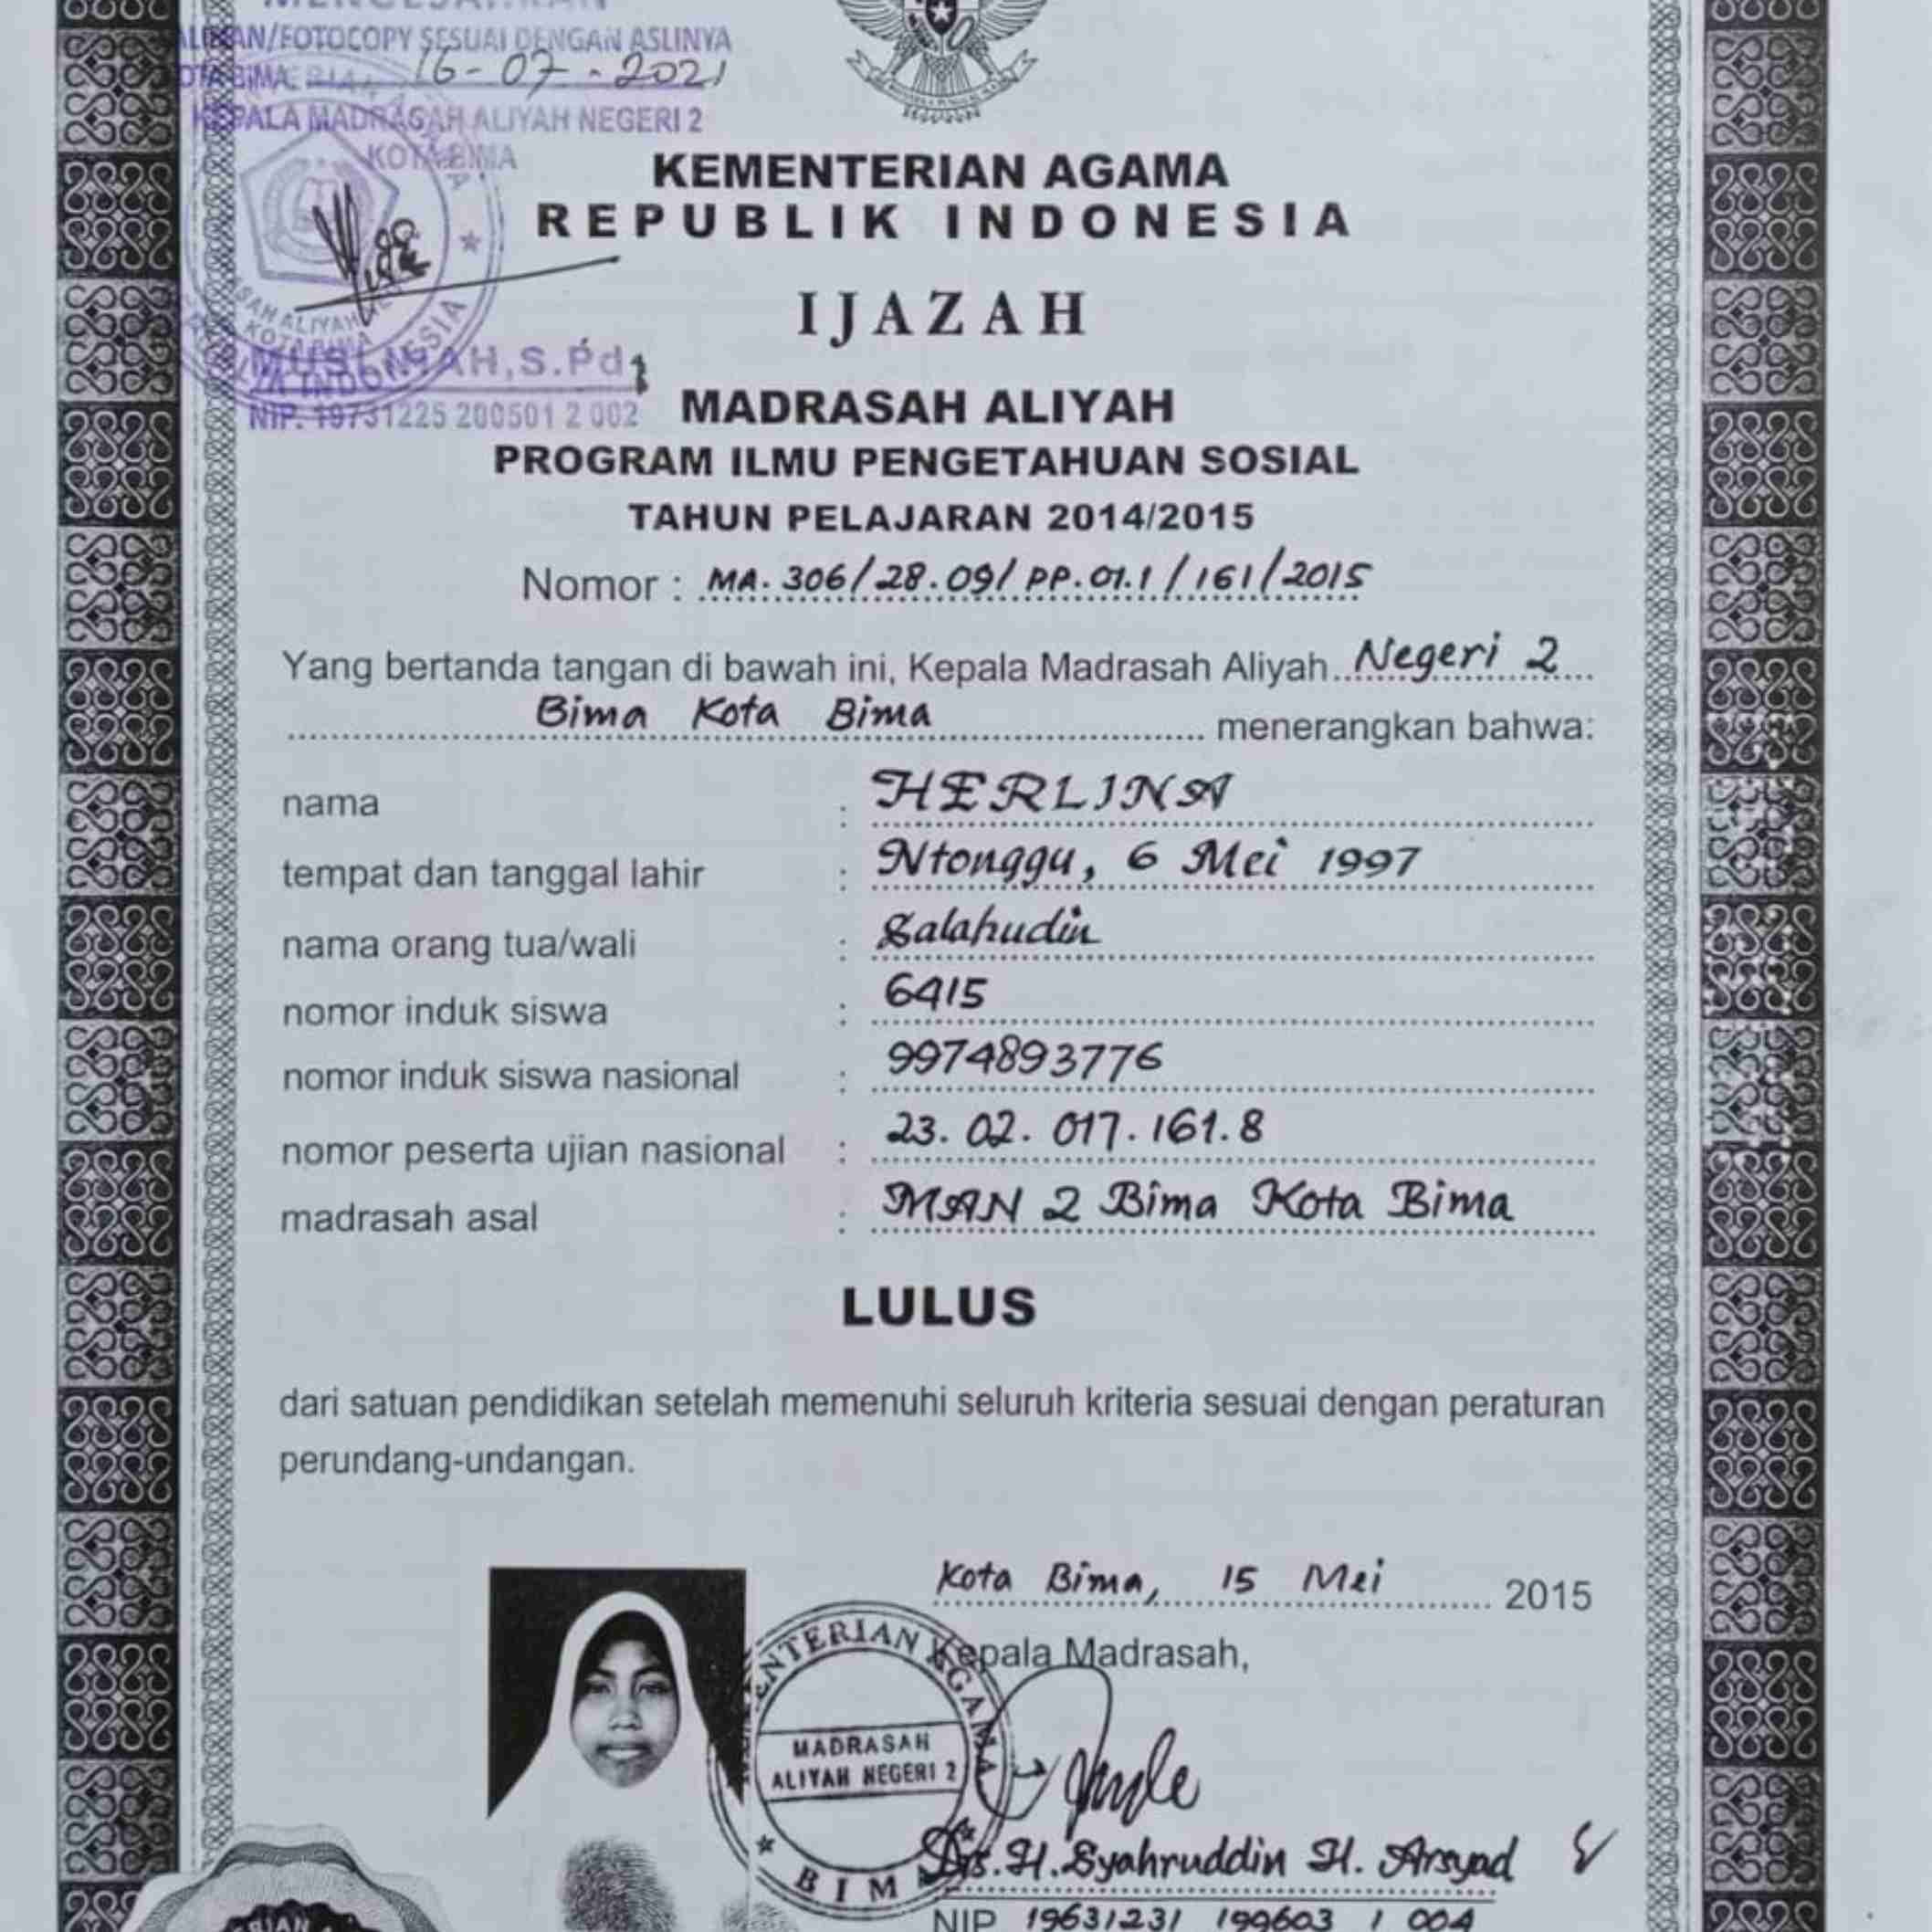 MENGESAHKAN
SALINAN/FOTOCOPY SESUAI DENGAN ASLINYA
KOTA BIMA, 16-07-2021
KEPALA MADRASAH ALIYAH NEGERI 2
KOTA BIMA
MUSLIMAH, S.Pd.I
NIP. 19731225 200501 2 002
KEMENTERIAN AGAMA
REPUBLIK INDONESIA
IJAZAH
MADRASAH ALIYAH
PROGRAM ILMU PENGETAHUAN SOSIAL
TAHUN PELAJARAN 2014/2015
Nomor : MA. 306/28.09/PP.01.1/161/2015
Yang bertanda tangan di bawah ini, Kepala Madrasah Aliyah Negeri 2
Bima Kota Bima menerangkan bahwa:
nama : HERLINA
tempat dan tanggal lahir : Ntonggu, 6 Mei 1997
nama orang tua/wali : Salahudin
nomor induk siswa : 6415
nomor induk siswa nasional : 9974893776
nomor peserta ujian nasional : 23.02.017.161.8
madrasah asal : MAN 2 Bima Kota Bima
LULUS
dari satuan pendidikan setelah memenuhi seluruh kriteria sesuai dengan peraturan
perundang-undangan.
Kota Bima, 15 Mei 2015
Kepala Madrasah,
KEMENTERIAN AGAMA
MADRASAH
ALIYAH NEGERI 2
BIMA
Drs. H. Syahruddin H. Arsyad
NIP 19631231 199603 1 004